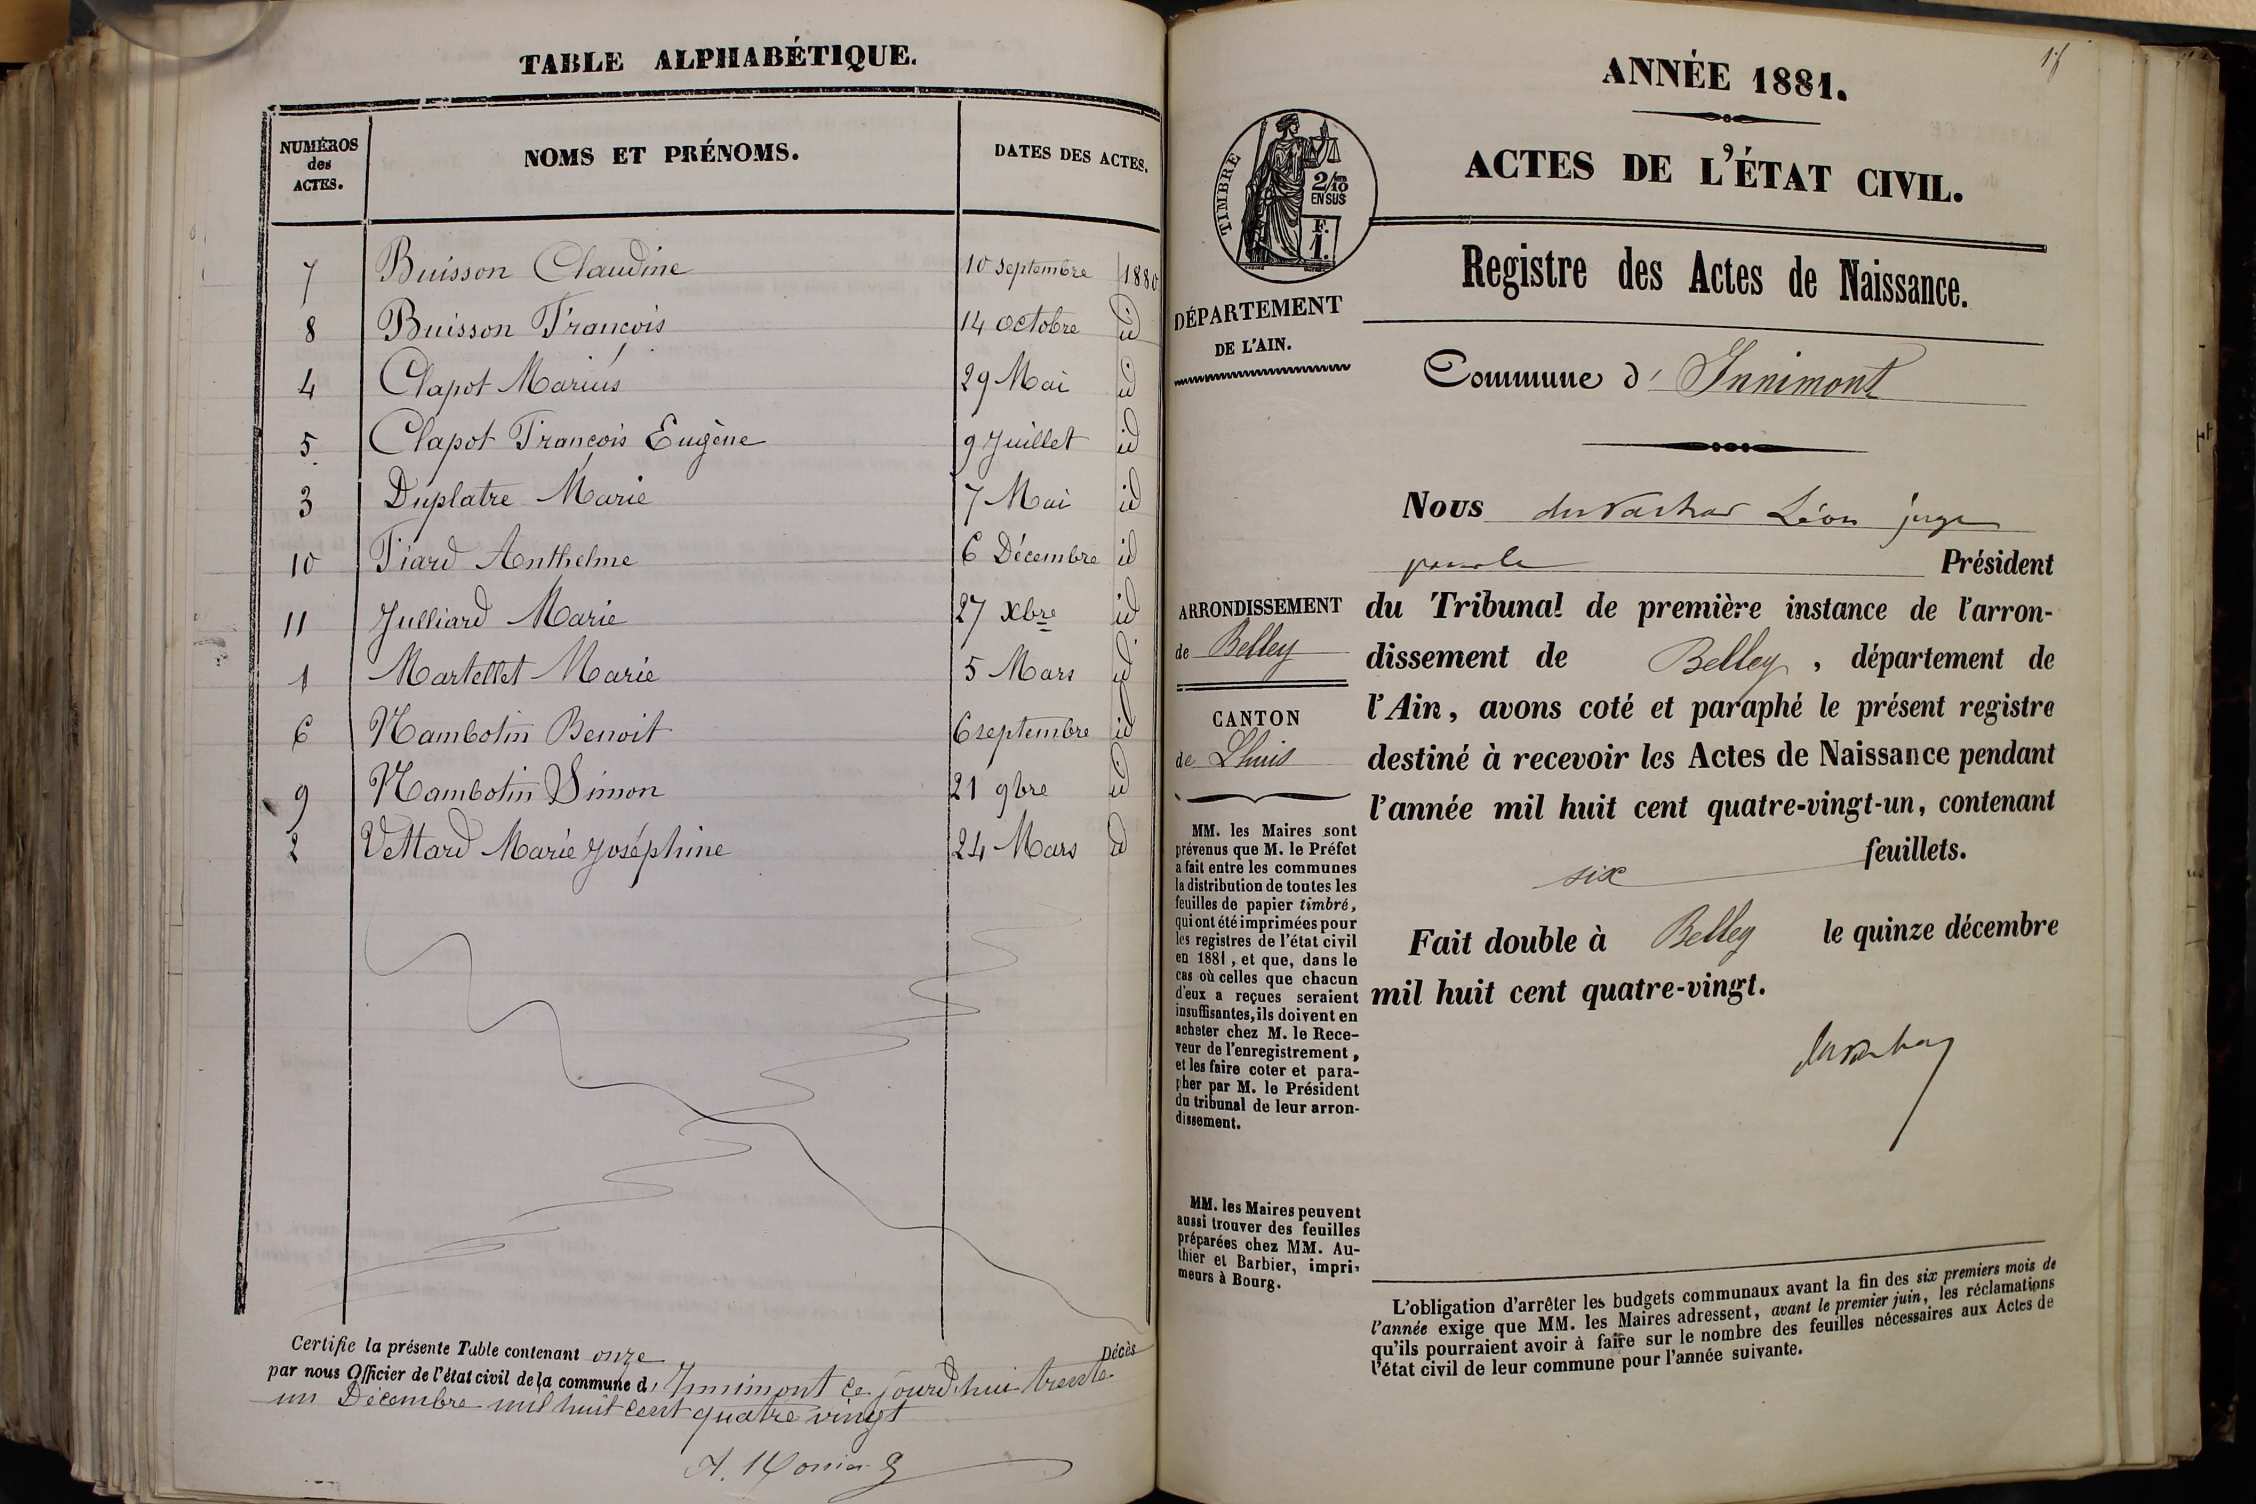 TABLE ALPHABÉTIQUE.
NUMÉROS des ACTES.
NOMS ET PRÉNOMS.
DATES DES ACTES.
7 Buisson Claudine 10 septembre 1880
8 Buisson François 14 octobre id
4 Clapot Marius 29 Mai id
5 Clapot François Eugène 9 Juillet id
3 Duplatre Marie 7 Mai id
10 Tiard Anthelme 6 Décembre id
11 Julliard Marie 27 xbre id
1 Martellet Marie 5 Mars id
6 Nambotin Benoit 6 septembre id
9 Nambotin Simon 21 9bre id
2 Vettard Marie Joséphine 24 Mars id
Certifie la présente Table contenant onze Décès
par nous Officier de l'état civil de la commune d'Innimont ce jourd'hui trente
un Décembre mil huit cent quatre vingt
ANNÉE 1881.
ACTES DE L'ÉTAT CIVIL.
TIMBRE
2/10
EN SUS
F.
1.
DÉPARTEMENT
DE L'AIN.
Registre des Actes de Naissance.
Commune d'Innimont
Nous Léon juge
Président
du Tribunal de première instance de l'arron-
dissement de Belley, département de
l'Ain, avons coté et paraphé le présent registre
destiné à recevoir les Actes de Naissance pendant
l'année mil huit cent quatre-vingt-un, contenant
six feuillets.
Fait double à Belley le quinze décembre
mil huit cent quatre-vingt.
ARRONDISSEMENT
de Belley
CANTON
de Lhuis
MM. les Maires sont
prévenus que M. le Préfet
a fait entre les communes
la distribution de toutes les
feuilles de papier timbré,
qui ont été imprimées pour
les registres de l'état civil
en 1881, et que, dans le
cas où celles que chacun
d'eux a reçues seraient
insuffisantes, ils doivent en
acheter chez M. le Rece-
veur de l'enregistrement,
et les faire coter et para-
pher par M. le Président
du tribunal de leur arron-
dissement.
MM. les Maires peuvent
aussi trouver des feuilles
préparées chez MM. Au-
thier et Barbier, impri-
meurs à Bourg.
L'obligation d'arrêter les budgets communaux avant la fin des six premiers mois de
l'année exige que MM. les Maires adressent, avant le premier juin, les réclamations
qu'ils pourraient avoir à faire sur le nombre des feuilles nécessaires aux Actes de
l'état civil de leur commune pour l'année suivante.